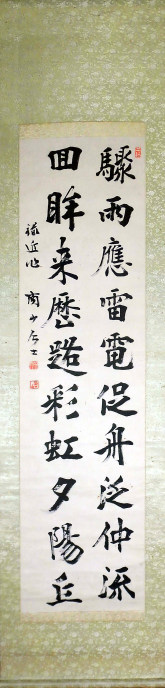 驟雨應雷電促舟泛仲流
回眸来歷跆彩虹夕陽丘
録近作